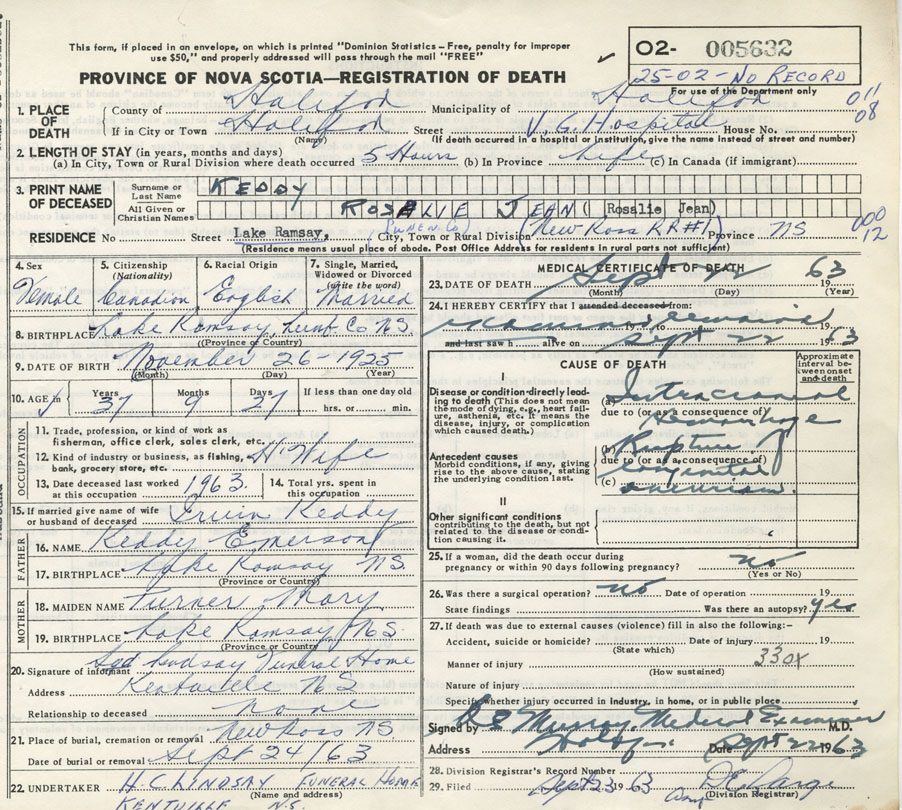 This form, if placed in an envelope, on which is printed "Dominion Statistics—Free, penalty for improper
use $50," and properly addressed will pass through the mail "FREE"
PROVINCE OF NOVA SCOTIA—REGISTRATION OF DEATH
02- 005632
25-02-NO RECORD
For use of the Department only
1. PLACE OF DEATH { County of Halifax Municipality of Halifax 011
If in City or Town Halifax Street V. G. Hospital House No. 08
(Name) (If death occurred in a hospital or institution, give the name instead of street and number)
2. LENGTH OF STAY (in years, months and days)
(a) In City, Town or Rural Division where death occurred 5 Hours (b) In Province Life (c) In Canada (if immigrant)
3. PRINT NAME OF DECEASED { Surname or Last Name KEDDY
All Given or Christian Names ROSALIE JEAN ( Rosalie Jean)
RESIDENCE No Street Lake Ramsay, (LUNEN. Co) City, Town or Rural Division (New Ross RR#1) Province NS 000 12
(Residence means usual place of abode. Post Office Address for residents in rural parts not sufficient)
4. Sex Female
5. Citizenship (Nationality) Canadian
6. Racial Origin English
7. Single, Married, Widowed or Divorced (write the word) Married
8. BIRTHPLACE Lake Ramsay, Lunf. Co NS
(Province or Country)
9. DATE OF BIRTH November 26-1925
(Month) (Day) (Year)
10. AGE in Years 37 Months 9 Days 27 If less than one day old hrs. or min.
OCCUPATION
11. Trade, profession, or kind of work as fisherman, office clerk, sales clerk, etc.
12. Kind of industry or business, as fishing, bank, grocery store, etc. H. Wife
13. Date deceased last worked at this occupation 1963
14. Total yrs. spent in this occupation
15. If married give name of wife or husband of deceased Irwin Keddy
FATHER
16. NAME Keddy Emerson
17. BIRTHPLACE Lake Ramsay NS
(Province or Country)
MOTHER
18. MAIDEN NAME Turner Mary
19. BIRTHPLACE Lake Ramsay NS
(Province or Country)
20. Signature of informant Sgd Lindsay Funeral Home
Address Kentville NS
Relationship to deceased none
21. Place of burial, cremation or removal New Ross NS
Date of burial or removal Sept 24/63
22. UNDERTAKER H. C. LINDSAY FUNERAL HOME
(Name and address)
KENTVILLE N.S.
MEDICAL CERTIFICATE OF DEATH
23. DATE OF DEATH Sept 22 1963
(Month) (Day) (Year)
24. I HEREBY CERTIFY that I attended deceased from:
examined remains 19 to 19
and last saw h alive on Sept 22 1963
CAUSE OF DEATH
Approximate interval between onset and death
I
Disease or condition directly leading to death (This does not mean the mode of dying, e.g., heart failure, asthenia, etc. It means the disease, injury, or complication which caused death.)
(a) Intracranial
due to (or as a consequence of)
Hemorrhage
Antecedent causes
Morbid conditions, if any, giving rise to the above cause, stating the underlying condition last.
(b) Rupture of
due to (or as a consequence of)
congenital
(c) aneurism.
II
Other significant conditions
contributing to the death, but not related to the disease or condition causing it.
25. If a woman, did the death occur during pregnancy or within 90 days following pregnancy? no
(Yes or No)
26. Was there a surgical operation? no Date of operation 19
State findings Was there an autopsy? yes
27. If death was due to external causes (violence) fill in also the following:-
Accident, suicide or homicide? Date of injury 19
(State which)
Manner of injury 330X
(How sustained)
Nature of injury
Specify whether injury occurred in industry, in home, or in public place
Signed by Murray Medical Examiner M.D.
Address Halifax Date Sept 22 1963
28. Division Registrar's Record Number
29. Filed Sept 23 1963
(Division Registrar)